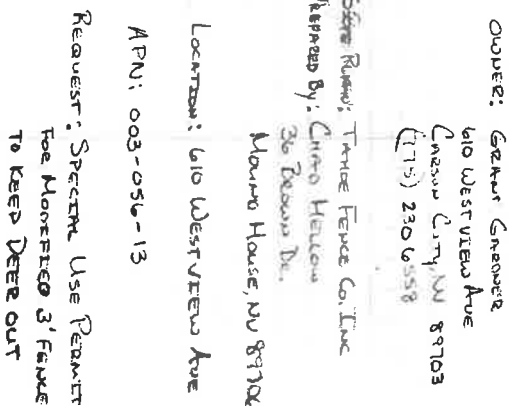 OWNER: GRANT GARDNER
610 WESTVIEW AVE
CARSON CITY, NV 89703
(775) 230 6558
TAHOE FENCE CO. INC
PREPARED By: CHAD HELLOW
36 BROWN DR.
MOUND HOUSE, NV 89706
LOCATION: 610 WESTVIEW AVE
APN: 003-056-13
REQUEST: SPECIAL USE PERMIT
FOR MODIFIED 3' FENCE
TO KEEP DEER OUT